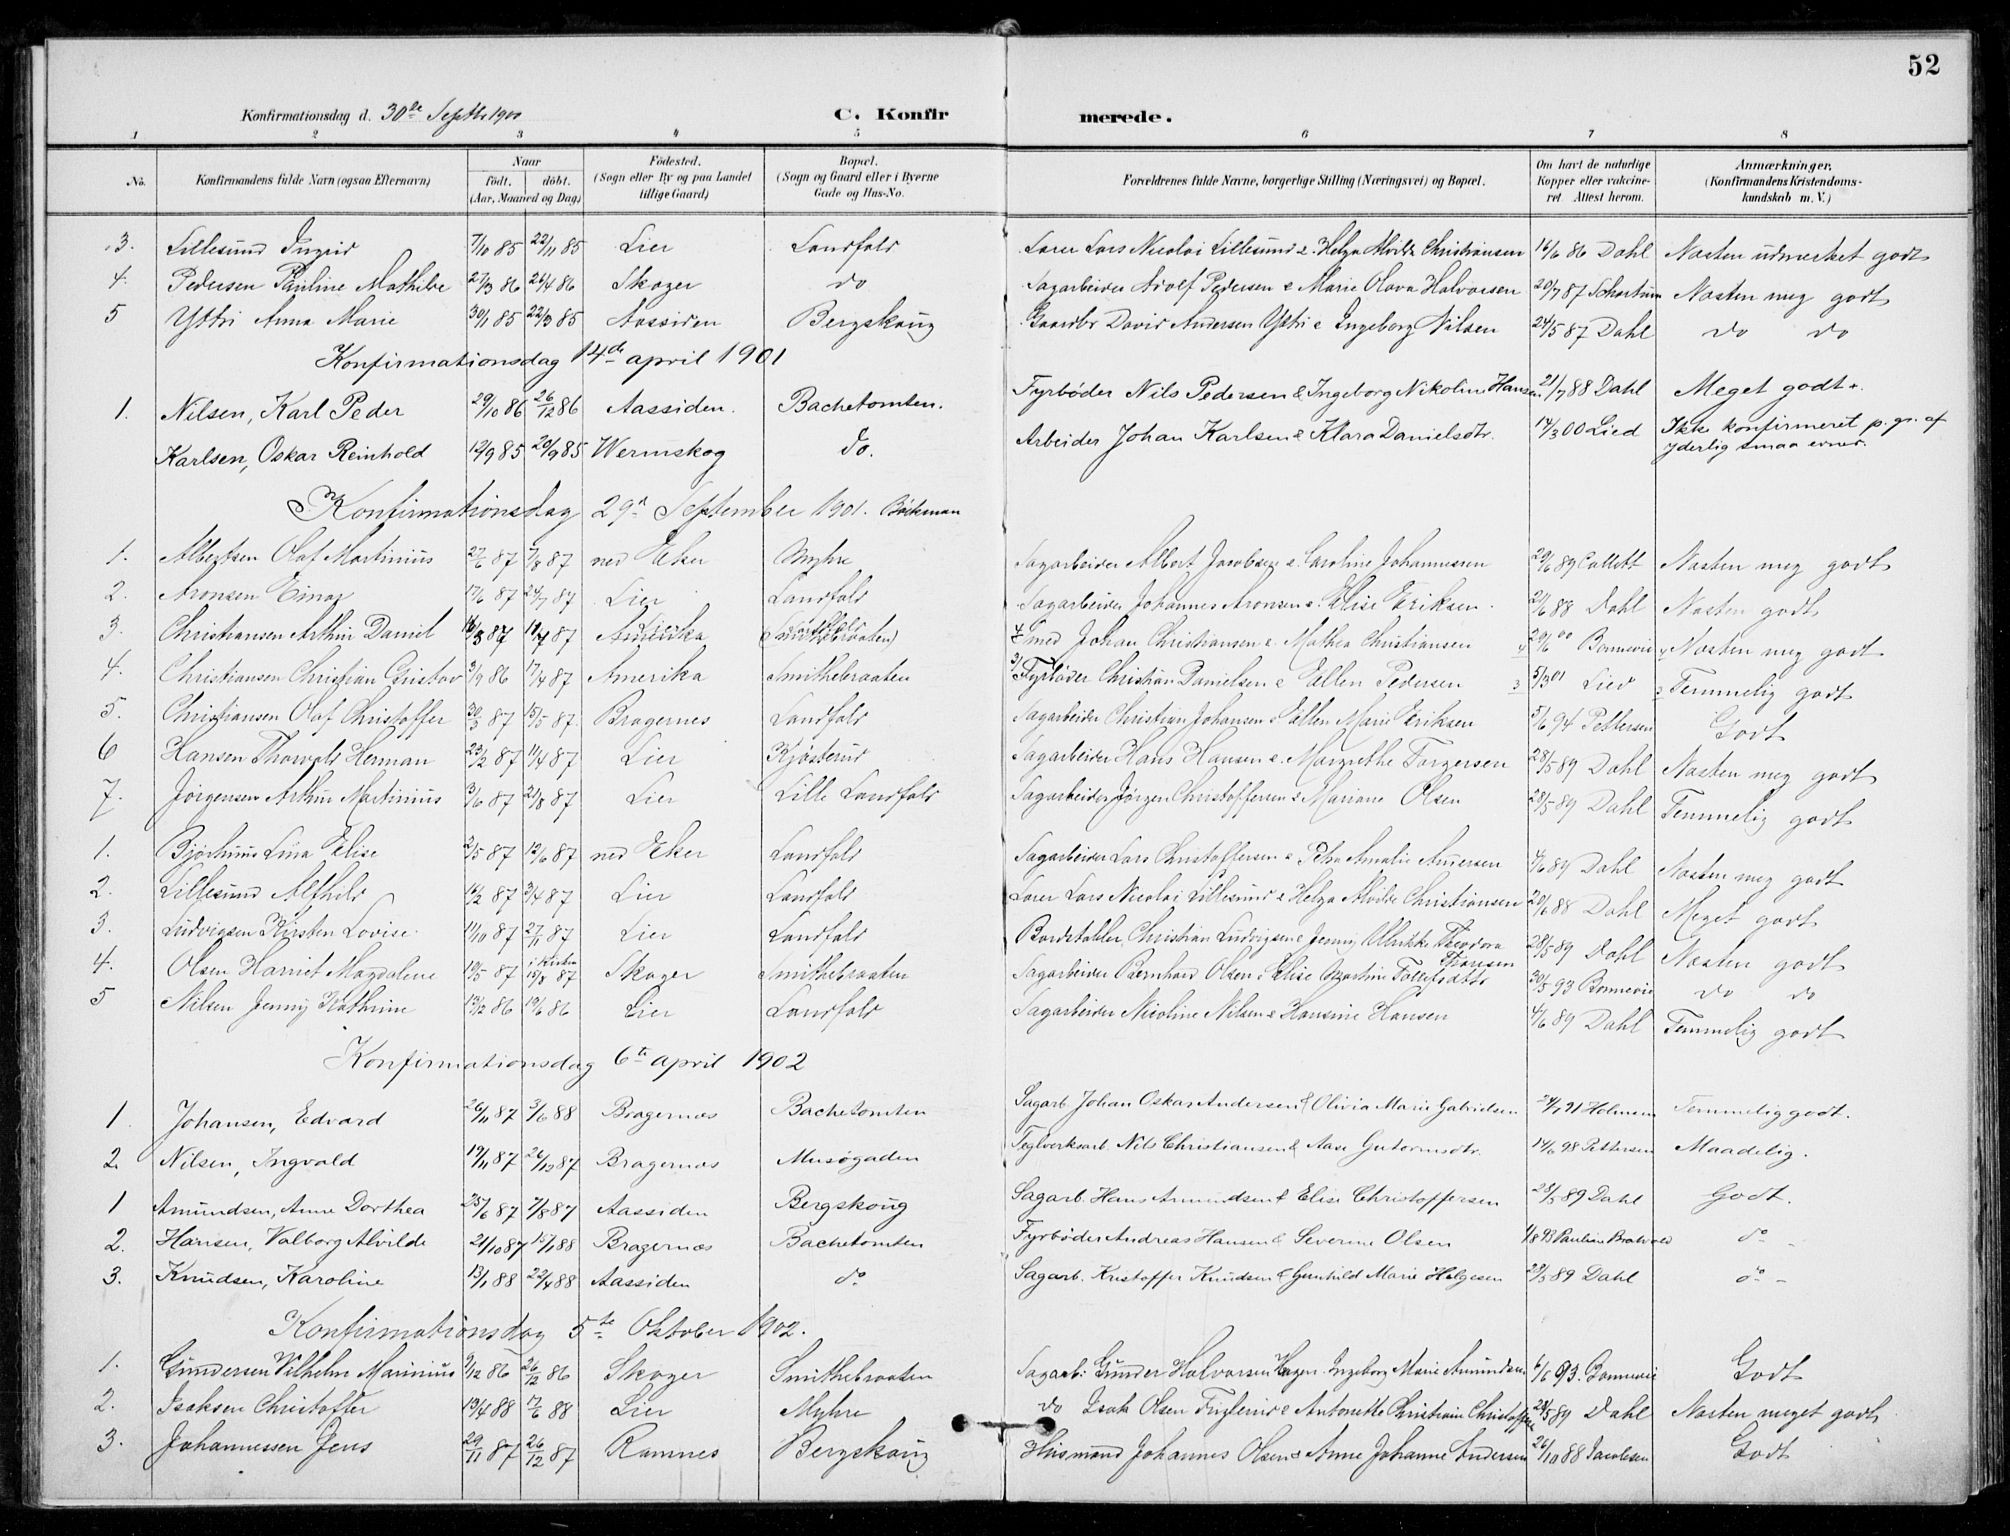 52
Konfirmationsdag d. 30de Septb 1900 C. Konfirmerede.
1 2 3 4 5 6 7 8
No. Konfirmandens fulde Navn (ogsaa Efternavn) Naar født. døbt. (Aar, Maaned og Dag) Fødested. (Sogn eller By og paa Landet tillige Gaard) Bopæl. (Sogn og Gaard eller i Byerne Gade og Hus-No. Forældrenes fulde Navne, borgerlige Stilling (Næringsvei) og Bopæl. Om havt de naturlige Kopper eller vakcineret. Attest herom. Anmærkninger, (Konfirmandens Kristendomskundskab m. V.)
3. Lillesund Ingrid 7/10 85 22/11 85 Lier Landfald Lærer Lars Nicolai Lillesund & Helga Alvilde Christiansen 16/6 86 Dahl Næsten udmerket godt
4. Pedersen Pauline Mathilde 27/3 86 26/4 86 Skoger do Sagarbeider Adolf Pedersen & Marie Olava Halvorsen 20/7 87 Schartum Næsten meg godt
5 Yttri Anna Marie 30/1 85 22/3 85 Aassiden Bergskoug Gaardbr David Andersen Yttri & Ingeborg Nilsen 24/5 87 Dahl do do
Konfirmationsdag 14de april 1901
1. Nilsen, Karl Peder 29/10 86 26/12 86 Aassiden. Bachetomten. Fyrbøder Nils Pedersen & Ingeborg Nikoline Hansen 21/7 88 Dahl Meget godt.
Karlsen, Oskar Reinhold 12/9 85 20/9 85 Wermskog do. Arbeider Johan Karlsen & Klara Danielsdtr. 14/3 00 Lied Ikke konfirmeret p. gr. af yderlig smaa evner.
Konfirmationsdag 29de September 1901. Bøckman
1. Albertsen Olaf Martinius 27/6 87 7/8 87 ned Eker Myhre Sagarbeider Albert Jacobsen & Caroline Johannessen 29/6 89 Collett Næsten meg godt
2. Aronsen Einar 17/6 87 24/7 87 Lier Landfald Sagarbeider Johannes Aronsen & Elise Eriksen 21/6 88 Dahl Næsten godt
3. Christiansen Arthur Daniel 87 87 Smed Johan Christiansen & Mathea Christiansen 29/6 00 Bonnevie Næsten meg godt
4. Christiansen Christian Gustav 3/9 86 17/4 87 Amerika Smithebraaten Fyrbøder Christian Danielsen & Ellen Pedersen 5/3 01 Lied Temmelig godt
5. Christiansen Olaf Christoffer 30/3 87 15/5 87 Bragernes Landfald Sagarbeider Christian Johansen & Ellen Marie Eriksen 5/6 94 Pettersen Godt
6 Hansen Thorvald Herman 23/2 87 11/4 87 Lier Kjøsterud Sagarbeider Hans Hansen & Margrethe Torgersen 28/5 89 Dahl Næsten meg godt
7. Jørgensen Arthur Martinius 3/6 87 21/8 87 Lier Lille Landfald Sagarbeider Jørgen Christoffersen & Mariane Olsen 28/5 89 Dahl Temmelig godt
1. Lina Elise 2/5 87 12/6 87 ned Eker Landfald Sagarbeider Lars Christoffersen & Amalie Andersen 4/6 89 Dahl Næsten meg godt
2. Lillesund Alfhild 16/2 87 3/4 87 Lier Landfald Lærer Lars Nicolai Lillesund & Helga Alvilde Christiansen 20/6 88 Dahl Meget godt
3. Ludvigsen Kirsten Lovise 11/10 87 27/11 87 Lier Landfald Bordstabler Christian Ludvigsen & Jenny Ulrikke Theodora Thoresen 28/5 89 Dahl Næsten godt
4. Olsen Harriet Magdalene 19/5 87 i Kirken 15/8 87 Skoger Smithebraaten Sagarbeider Bernhard Olsen & Elise Martine Tollefsdatter 30/5 93 Bonnevie do do
5 Nilsen Jenny Kathrine 13/2 86 19/6 86 Lier Landfald Sagarbeider Nicoline Nilsen & Hansine Hansen 4/6 89 Dahl Temmelig godt
Konfirmationsdag 6te april 1902
1 Johansen, Edvard 26/11 87 3/6 88 Bragernæs Bachetomten Sagarb. Johan Oskar Andersen & Olivia Marie Gabrielsen 91 Holmsen Temmelig godt.
2. Nilsen, Ingvald 19/11 87 26/12 87 Bragernæs Musøgaden Teglverksarb. Nils Christiansen & Aase Gutormsdtr. 14/6 98 Pettersen Maadelig.
1 Amundsen, Anne Dorthea 25/6 87 7/8 87 Aassiden Bergskoug Sagarb. Hans Amundsen & Elise Christoffersen 28/5 89 Dahl Godt.
2. Hansen, Valborg Alvilde 21/10 87 15/1 88 Bragernæs Bachetomten Fyrbøder Andreas Hansen & Severine Olsen 1/8 93 Pauline Bratvold do
3. Knudsen, Karoline 13/1 88 22/4 88 Aassiden do Sagarb. Kristoffer Knudsen & Gunhild Marie Helgesen 28/5 89 Dahl do
Konfirmationsdag 5te Oktober 1902.
1. Gundersen Vilhelm Marinius 9/12 86 26/12 86 Skoger Smithebraaten Sagarb: Gunder Halvorsen Hagen Ingeborg Marie Amundsen 6/6 93. Bonnevie Godt
2. Isaksen Christoffer 19/4 88 17/6 88 Lier Myhre do Isak Olsen Fuglerud & Antonette Christiane Christoffersen 28/5 89 Dahl Næsten meget godt
3. Johannessen Jens 29/11 87 26/12 87 Ramnes Bergskoug Husmand Johannes Olsen & Anne Johanne Andersen 26/10 88 Jacobsen Godt